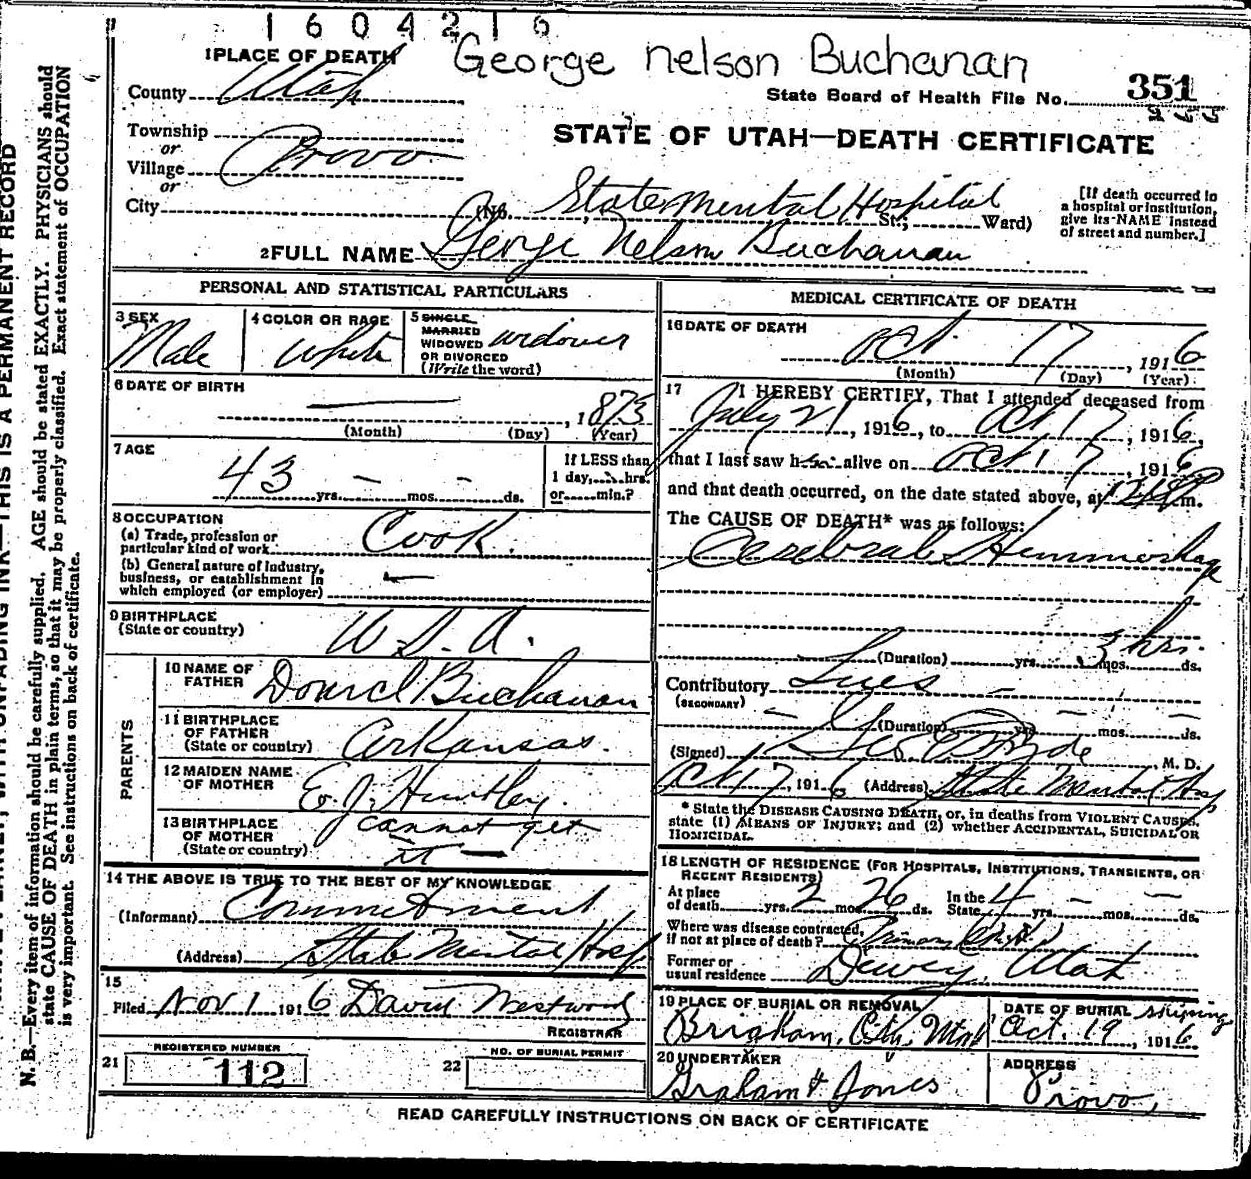 1604216
George Nelson Buchanan
1 PLACE OF DEATH
County Utah
State Board of Health File No. 351
355
Township
or
Village Provo
or
City
STATE OF UTAH—DEATH CERTIFICATE
(No. State Mental Hospital St.; Ward)
[If death occurred in
a hospital or institution,
give its NAME instead
of street and number.]
2 FULL NAME George Nelson Buchanan
PERSONAL AND STATISTICAL PARTICULARS
3 SEX
Male
4 COLOR OR RACE
White
5 SINGLE
MARRIED
WIDOWED
OR DIVORCED
(Write the word)
widower
6 DATE OF BIRTH
—, 1873
(Month) (Day) (Year)
7 AGE
43 yrs. — mos. — ds.
If LESS than
1 day, hrs.
or min.?
8 OCCUPATION
(a) Trade, profession or
particular kind of work Cook.
(b) General nature of industry,
business, or establishment in
which employed (or employer) —
9 BIRTHPLACE
(State or country)
U.S.A.
PARENTS
10 NAME OF
FATHER
Buchanan
11 BIRTHPLACE
OF FATHER
(State or country)
Arkansas.
12 MAIDEN NAME
OF MOTHER
E. J. Huntley.
13 BIRTHPLACE
OF MOTHER
(State or country)
cannot get
it —
14 THE ABOVE IS TRUE TO THE BEST OF MY KNOWLEDGE
(Informant) Commitment
(Address) State Mental Hosp
15
Filed Nov 1 1916 David Westwood
REGISTRAR
21 REGISTERED NUMBER
112
22 NO. OF BURIAL PERMIT
MEDICAL CERTIFICATE OF DEATH
16 DATE OF DEATH
Oct. 17, 1916
(Month) (Day) (Year)
17 I HEREBY CERTIFY, That I attended deceased from
July 21, 1916, to Oct 17, 1916,
that I last saw h alive on Oct 17, 1916
and that death occurred, on the date stated above, at m.
The CAUSE OF DEATH* was as follows:
Cerebral Hemmorhage
(Duration) yrs. mos. ds. 3 hrs.
Contributory Lues —
(SECONDARY)
(Duration) yrs. mos. ds.
(Signed) Geo , M. D.
Oct 17, 1916 (Address) State Mental Hosp
* State the DISEASE CAUSING DEATH, or, in deaths from VIOLENT CAUSES,
state (1) MEANS OF INJURY; and (2) whether ACCIDENTAL, SUICIDAL OR
HOMICIDAL.
18 LENGTH OF RESIDENCE (FOR HOSPITALS, INSTITUTIONS, TRANSIENTS, OR
RECENT RESIDENTS)
At place
of death yrs. 2 mos. 26 ds. In the
State 4 yrs. — mos. — ds.
Where was disease contracted,
if not at place of death?
Former or
usual residence Dewey, Utah
19 PLACE OF BURIAL OR REMOVAL
Brigham, City, Utah
DATE OF BURIAL shipping
Oct. 19, 1916
20 UNDERTAKER
Graham & Jones
ADDRESS
Provo,
READ CAREFULLY INSTRUCTIONS ON BACK OF CERTIFICATE
WITH UNFADING INK—THIS IS A PERMANENT RECORD
N. B.—Every item of information should be carefully supplied. AGE should be stated EXACTLY. PHYSICIANS should
state CAUSE OF DEATH in plain terms, so that it may be properly classified. Exact statement of OCCUPATION
is very important. See instructions on back of certificate.